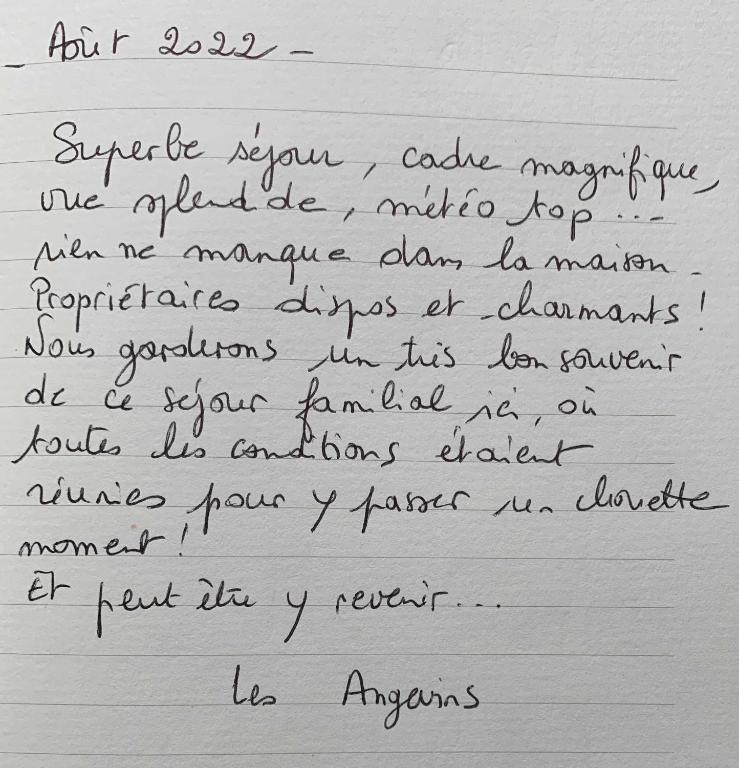 _ Août 2022 -
Superbe séjour, cadre magnifique,
vue splendide, météo top ...
rien ne manque dans la maison.
Propriétaires dispos et charmants !
Nous garderons un très bon souvenir
de ce séjour familial ici, où
toutes les conditions étaient
réunies pour y passer un chouette
moment !
Et peut être y revenir...
Les Angevins